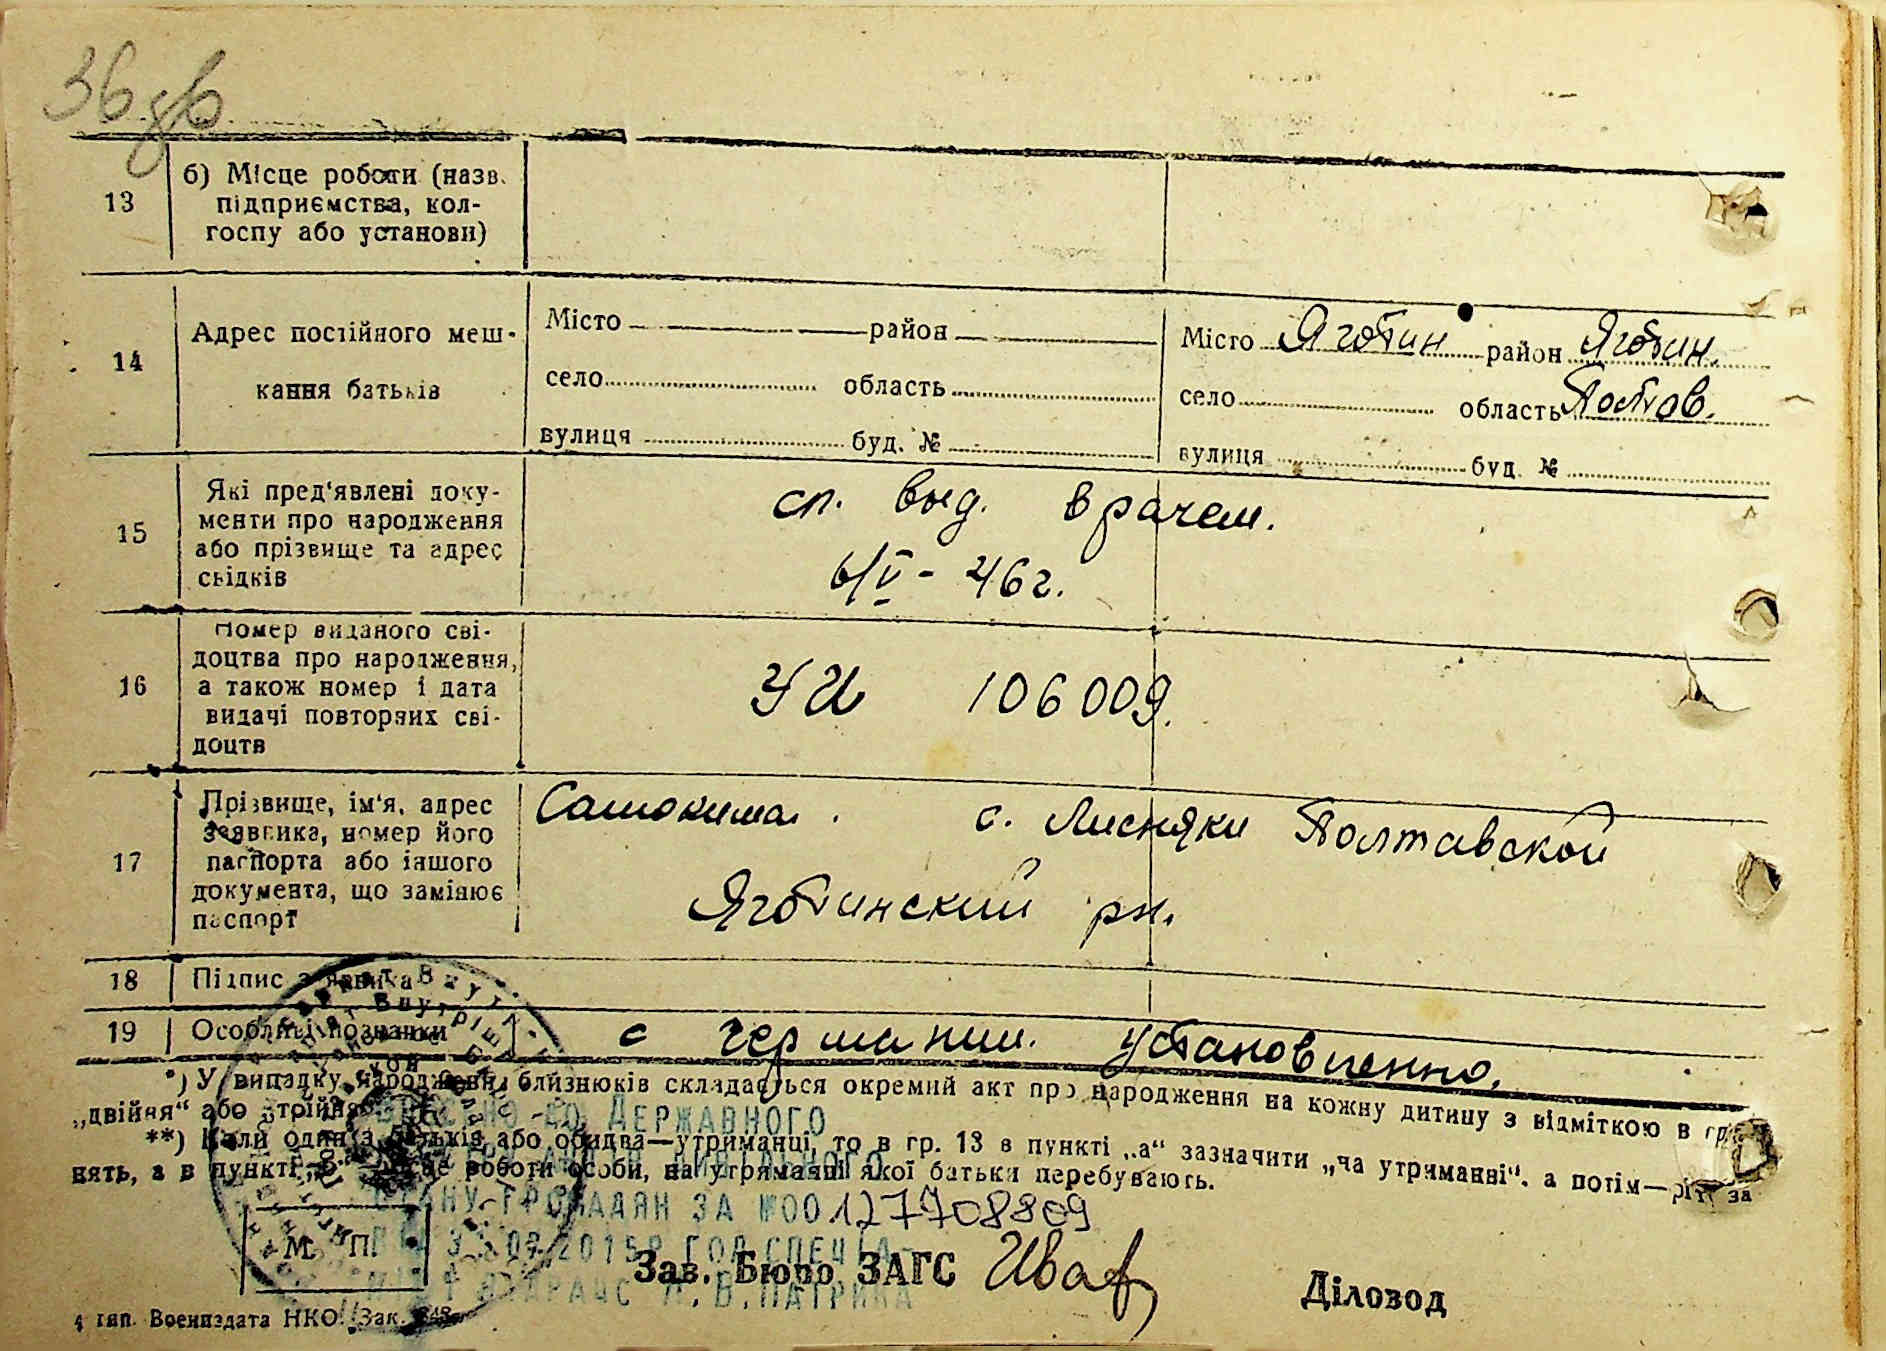 36
13
б) Місце роботи (назв.
підприємства, кол-
госпу або установи)
14
Адрес постійного меш-
кання батьків
Місто район
село область
вулиця буд. №
Місто Яготин район Яготин.
село область Полтав.
вулиця буд. №
15
Які пред'явлені доку-
менти про народження
або прізвище та адрес
свідків
сп. выд. врачем.
6/V - 46г.
16
Номер виданого сві-
доцтва про народження,
а також номер і дата
видачі повторних сві-
доцтв
УИ 106009.
17
Прізвище, ім'я, адрес
заявника, номер його
паспорта або іншого
документа, що замінює
паспорт
с. Лисняки Полтавской
Яготинский рн.
18 Підпис заявника
19 Особливі познаки
с германии. установленно.
*) У випадку народження близнюків складається окремий акт про народження на кожну дитину з відміткою в гр.
„двійня“ або „трійня“
**) Коли один з батьків або обидва—утриманці, то в гр. 13 в пункті „а“ зазначити „на утриманні“, а потім—
нять, а в пункті „б“ місце роботи особи, на утриманні якої батьки перебувають.
ВНЕСЕНО ДО ДЕРЖАВНОГО
РЕЄСТРУ АКТІВ ЦИВІЛЬНОГО
СТАНУ ГРОМАДЯН ЗА №00127708809
М. П.
Зав. Бюро ЗАГС
Діловод
4 тип. Воениздата НКО. Зак.